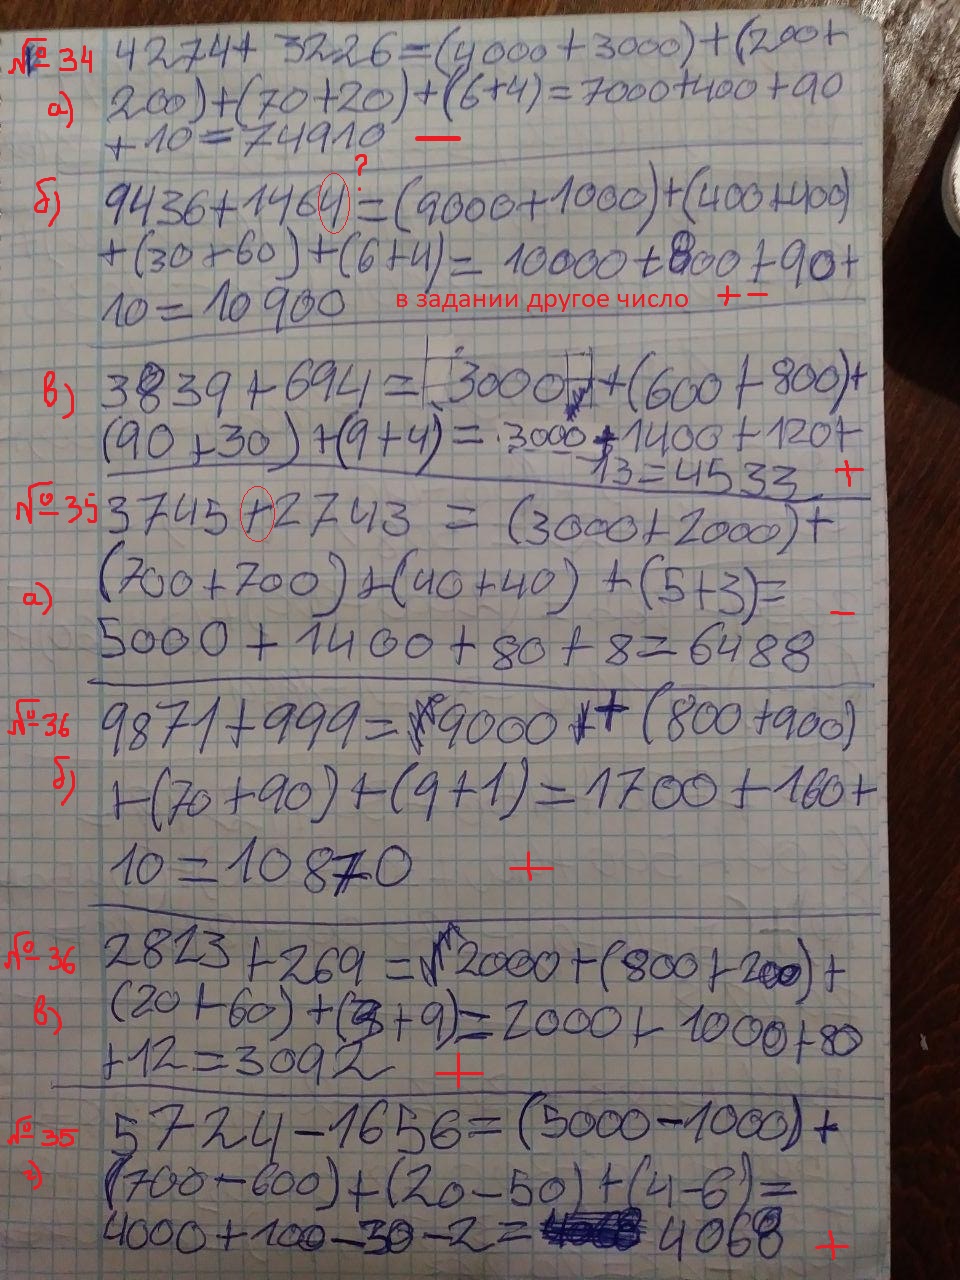 № 34 4274+ 3226=(4000+3000)+(200+
а) 200)+(70+20)+(6+4)=7000+400+90
+10=74910 —
?
б) 9436+1464=(9000+1000)+(400+400)
+(30+60)+(6+4)= 10000+800+90+
10=10900 в задании другое число + −
в) 3839+694= 3000 +(600+800)+
(90+30)+(9+4)=3000+1400+120+
13=4533 +
№ 35 3745+2743 = (3000+2000)+
а) (700+700)+(40+40) +(5+3)= −
5000+1400+80+8=6488
№ 36 9871+999= 9000 + (800+900)
б) +(70+90)+(9+1)=1700+160+
10=10870 +
№ 36 2823+269= 2000+(800+200)+
в) (20+60)+(3+9)=2000+1000+80
+12=3092 +
№ 35 5724-1656=(5000-1000)+
(700-600)+(20-50)+(4-6)=
4000+100-30-2= 4068 +